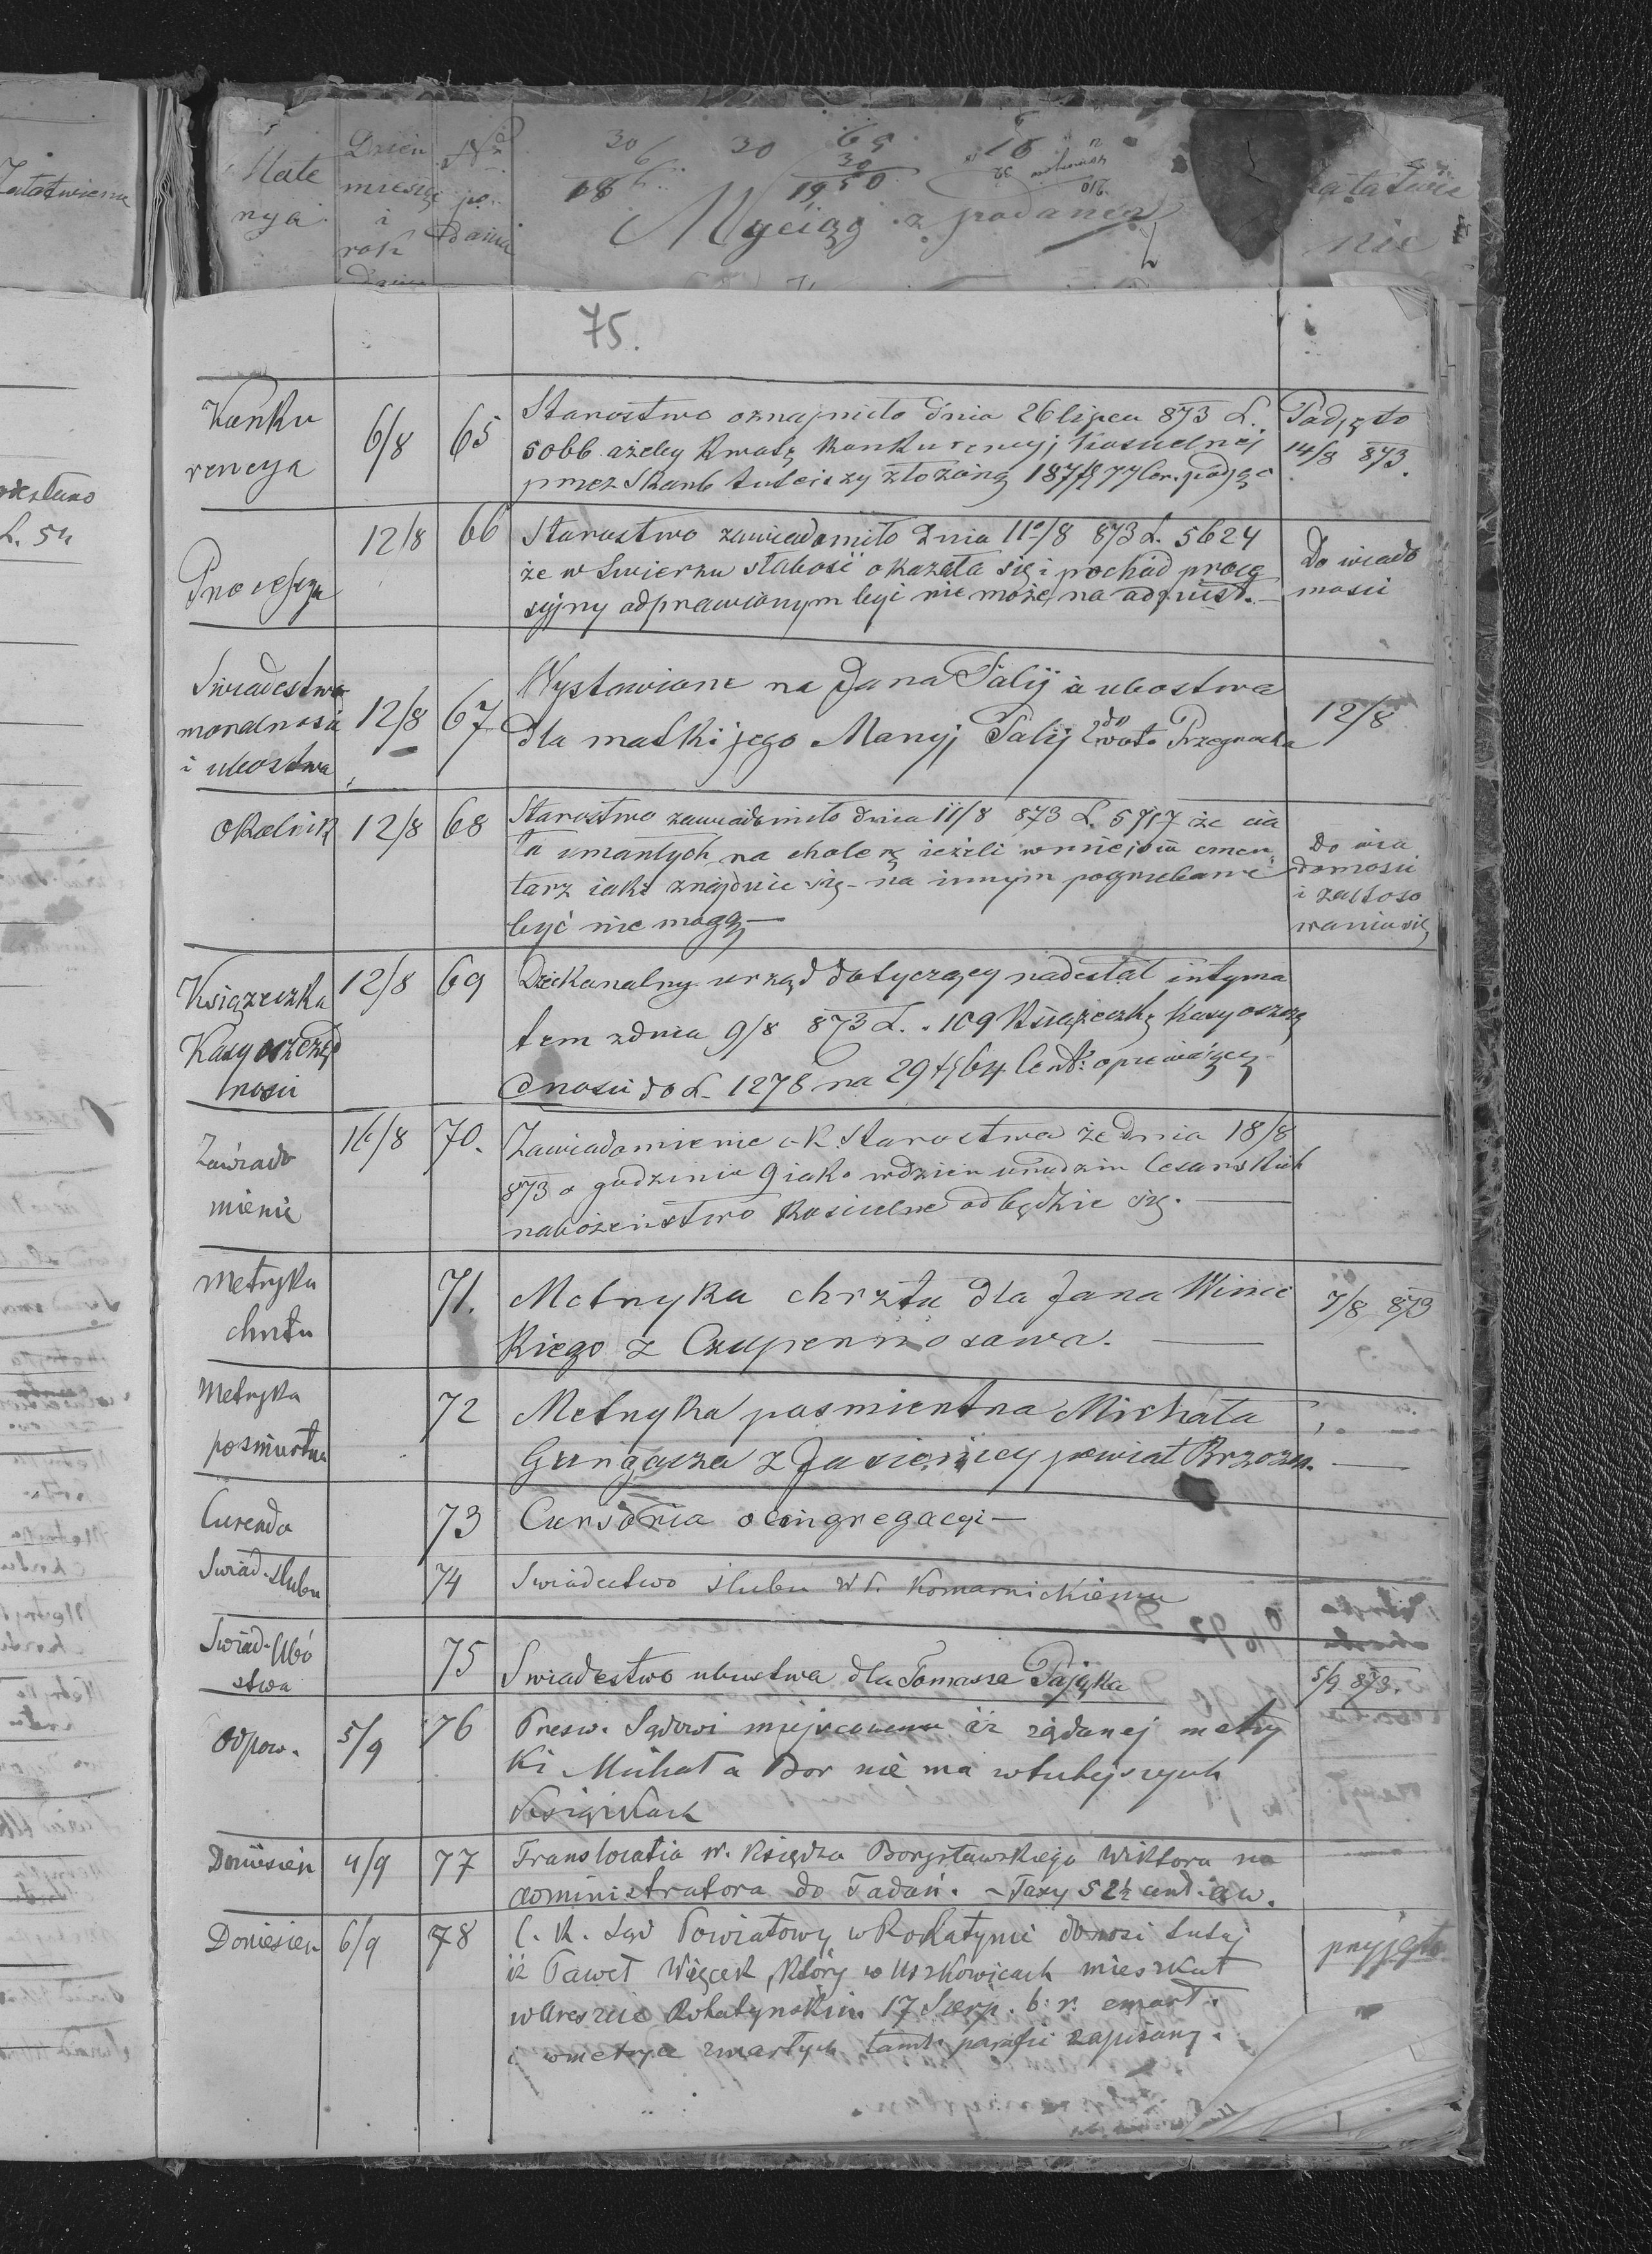 Załatwienie
Mate
ryja
Dzień
miesiąc
i
rok
No
po
dania
Wyciąg z podania
ałatwie
nie
75.
Konku
rencya
6/8
65
Starostwo oznajmiło dnia 26 lipca 873 L.
5066 ażeby kwotę konkurencyj kościelnej
przez Skarb tuteiszy złożoną podjąć
Podjęto
14/8 873.
Procesya
12/8
66
Starostwo zawiadomiło dnia 11/8 873 L. 5624
że w Swierzu słabość okazała się i pochód proce
syjny odprawionym być nie może na odpust.
Do wiado
mości
Swiadestwo
moralności
i ubostwa
12/8
67
Wystawione na Jana Palij a ubostwa
dla matki jego Maryj Palij 2do voto Przegrocka
12/8
Okolnik
12/8
68
Starostwo zawiadomiło dnia 11/8 873 L. że cia
ła umarłych na cholerę jeżeli w miejscu cmen
tarz iaki znajdnie się - na innym pogrzebane
być nie mogą —
Do wia
domości
i zastoso
wania się
Książeczka
Kasy oszczęd
ności
12/8
69
Dziekanalny urząd dotyczący nadesłał intyma
tem z dnia 9/8 873 L. 109 Książeczkę Kasy oszczę
dności do L. 1278 na 29 64 Cent. opiewającą
Zawiado
mienie
16/8
70.
Zawiadomienie c. k. Starostwa że dnia 18/8
873 o godzinie 9 iako w dzień urodzin Cesarskich
nabożeństwo Kościelne odbędzie się. —
Metryka
chrztu
71.
Metryka chrztu dla Jana Winic
kiego z Czupernosowa. —
7/8 873
Metryka
pośmiertna
72
Metryka pośmiertna Michała
z Jasienicy powiat Brzozów. —
Curenda
73
Cursoria o Congregacyi —
Swiad. slubu
74
Swiadectwo slubu W P. Komarnickiemu
Swiad. Ubó
stwa
75
Swiadestwo ubustwa dla Tomasza Pająka
5/9 873.
Odpow.
5/9
76
Presw. Sądowi miejscowemu iż rządanej metry
ki Michała Bor nie ma w tutejszych
Książkach
Doniesien
4/9
77
Translocatio w. Księdza Borysławskiego Wiktora na
administratora do Tadań. - Taxy 52½ cent. a w.
Doniesien
6/9
78
C. K. Sąd Powiatowy w Rohatynie donosi tutej
iż Paweł Więcek, który w Uszkowicach mieszkał
w Areszcie Rohatynskim 17 Sierp. b. r. emarł.
i w metryce zmarłych tamt. parafii zapisany.
przyjęto